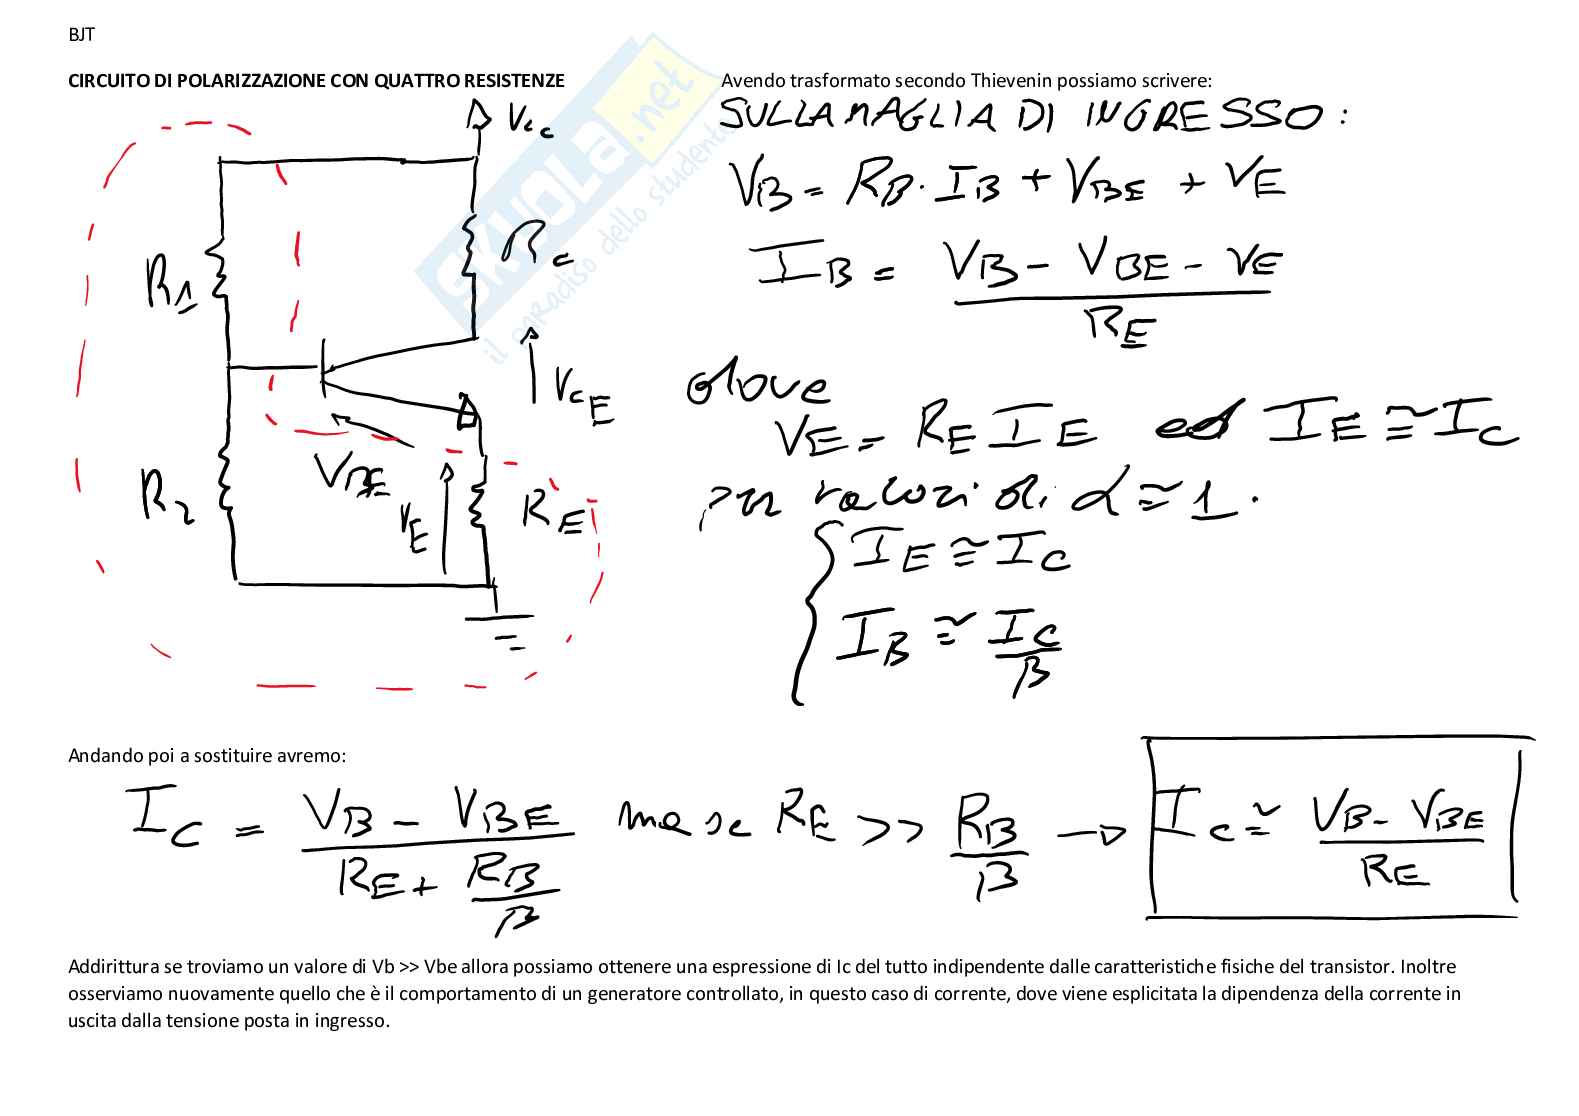 BJT
CIRCUITO DI POLARIZZAZIONE CON QUATTRO RESISTENZE
Vcc
R1
Rc
VCE
VBE
R2
VE
RE
SKUOLA.net
il paradiso dello studente
Avendo trasformato secondo Thievenin possiamo scrivere:
SULLA MAGLIA DI INGRESSO:
VB = RB · IB + VBE + VE
IB = (VB - VBE - VE) / RE
dove
VE = RE IE ed IE ≅ IC
per valori di α ≅ 1.
{ IE ≅ IC
IB ≅ IC / β
Andando poi a sostituire avremo:
IC = (VB - VBE) / (RE + RB/β) ma se RE >> RB/β → IC ≅ (VB - VBE) / RE
Addirittura se troviamo un valore di Vb >> Vbe allora possiamo ottenere una espressione di Ic del tutto indipendente dalle caratteristiche fisiche del transistor. Inoltre
osserviamo nuovamente quello che è il comportamento di un generatore controllato, in questo caso di corrente, dove viene esplicitata la dipendenza della corrente in
uscita dalla tensione posta in ingresso.